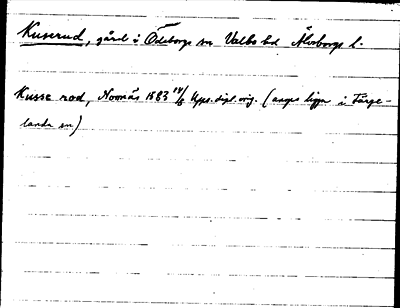 Kuserud, gård i Ödeborgs sn Valbo hd Älvsborgs l.
Kusse rod, Noonäs 1583 14/6 Upps. dipl. orig. (anges ligga i Färge-
landa sn)